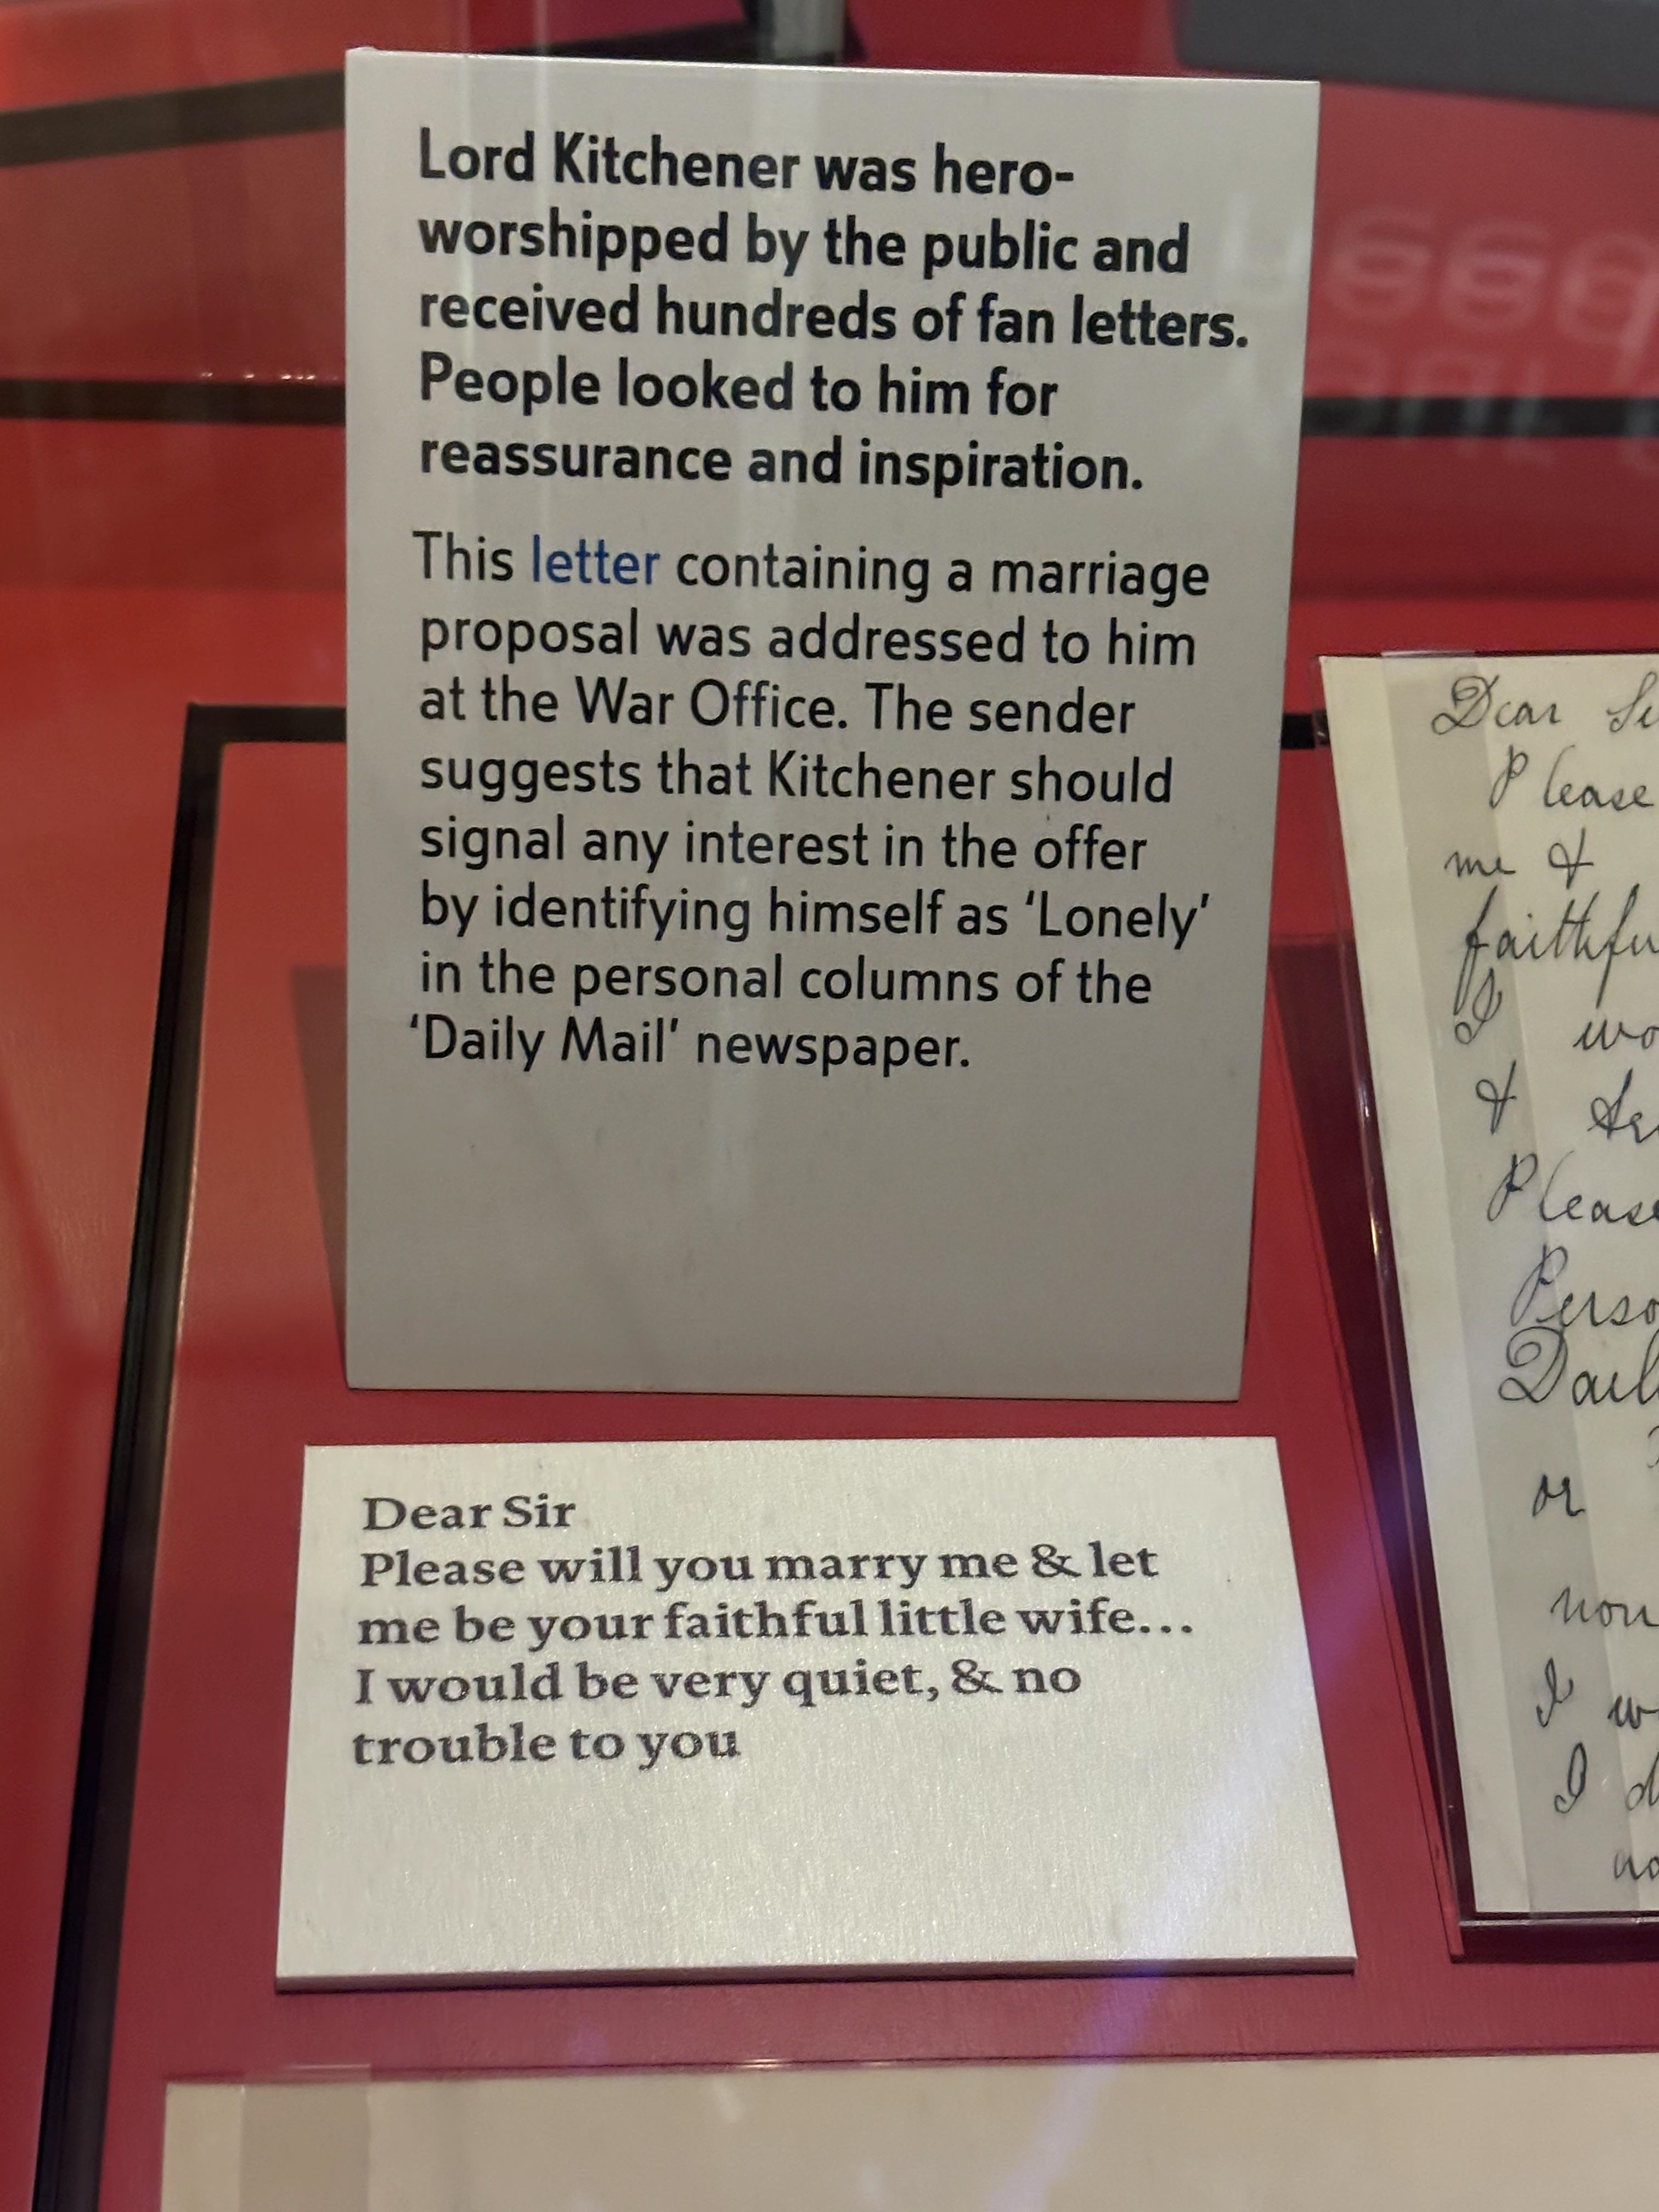 Lord Kitchener was hero-
worshipped by the public and
received hundreds of fan letters.
People looked to him for
reassurance and inspiration.
This letter containing a marriage
proposal was addressed to him
at the War Office. The sender
suggests that Kitchener should
signal any interest in the offer
by identifying himself as ‘Lonely’
in the personal columns of the
‘Daily Mail’ newspaper.
Dear Sir
Please will you marry me & let
me be your faithful little wife...
I would be very quiet, & no
trouble to you
Dear
Please
me &
I
&
Please
or
I
I